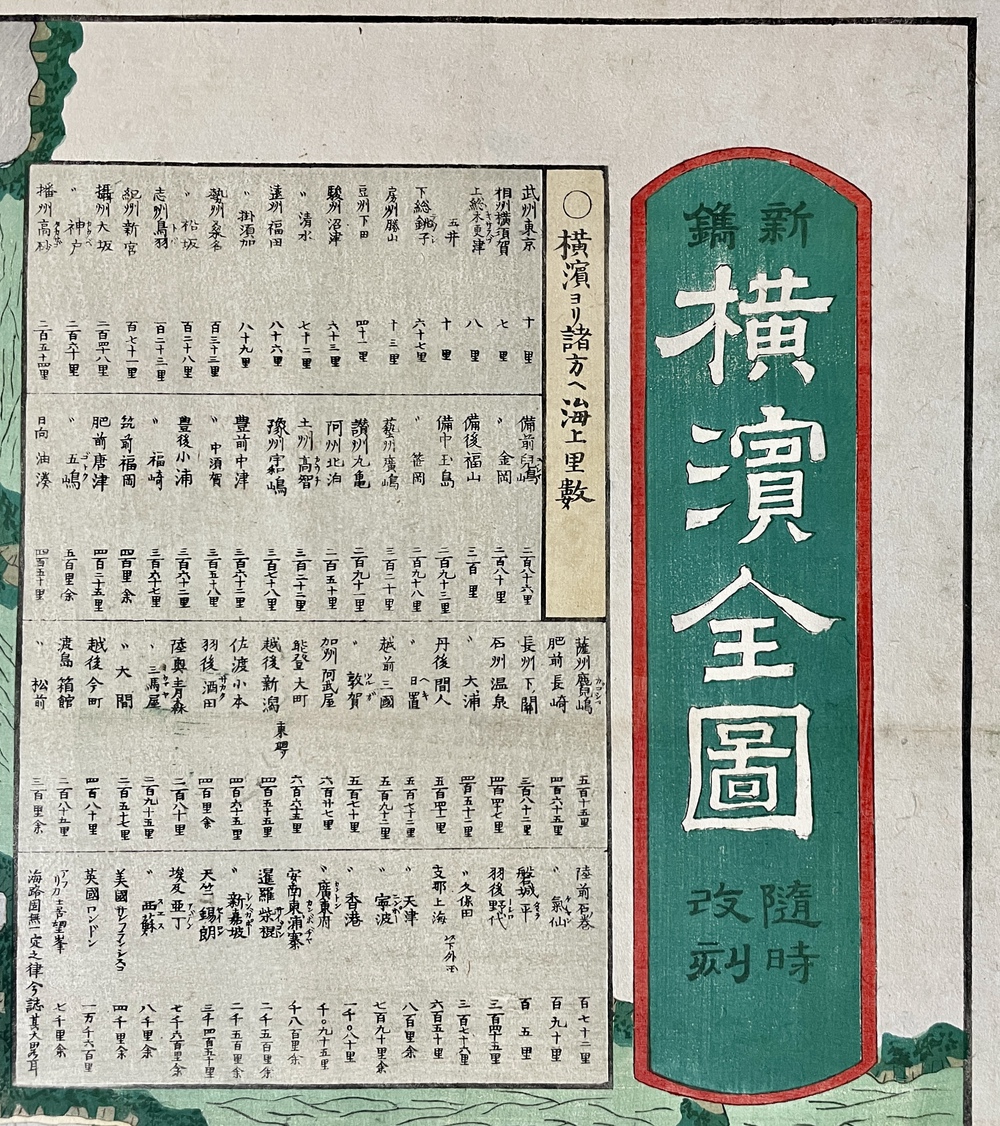 新鐫
横濱全圖
隨時改刻
○横濱ヨリ諸方ヘ海上里數
武州東京 十里
相州横須賀 七里
上総木更津 八里
〃五井 十里
下総銚子 六十七里
房州勝山 十三里
豆州下田 四十一里
駿州沼津 六十三里
〃清水 七十二里
遠州福田 八十六里
〃掛須加 八十九里
勢州桑名 百三十三里
〃松坂 百二十八里
志州鳥羽 百二十三里
紀州新宮 百七十一里
攝州大坂 二百四十八里
〃神戸 二百六十里
播州高砂 二百五十四里
備前兒嶋 二百八十六里
〃金岡 二百八十里
備後福山 三百里
備中玉島 二百九十三里
〃笠岡 二百九十八里
藝州廣嶋 三百二十里
讃州丸亀 二百九十一里
阿州北泊 二百五十里
土州高智 三百二十二里
豫州宇和嶋 三百七十八里
豊前中津 三百六十三里
〃中須賀 三百五十八里
豊後小浦 三百六十二里
〃福崎 三百六十七里
筑前福岡 四百里余
肥前唐津 四百三十五里
〃五嶋 五百里余
日向油湊 四百五十里
薩州鹿児嶋 五百十五里
肥前長崎 四百六十五里
長州下關 三百八十二里
石州温泉 四百四十七里
〃大浦 四百五十二里
丹後間人 五百四十二里
〃日置 五百七十二里
越前三國 五百九十二里
〃敦賀 五百七十里
加州阿武屋 六百廿七里
能登大町 六百六十五里
越後新潟 東聘ヲ 四百五十五里
佐渡小本 四百六十五里
羽後酒田 四百里余
陸奥青森 二百八十里
〃三馬屋 二百九十五里
〃大間 二百五十七里
越後今町 四百八十里
渡島箱館 二百八十五里
〃松前 三百里余
陸前石巻 百七十二里
〃氣仙 百九十里
磐城平 百五里
羽後野代 三百四十五里
〃久保田 三百七十六里
支那上海 以下外国 六百五十里
〃天津 八百里余
〃寧波 七百九十里余
〃香港 一千〇八十里
〃廣東府 千〇九十五里
安南東浦寨 千八百里余
暹羅柴棍 二千五百里余
〃新嘉坡 二千五百里余
天竺錫朗 三千四百五十里
埃及亜丁 七千六百里余
〃西蘇 八千里余
美國サンフランシスコ 四千里余
英國ロンドン 一万千六百里
アフリカ喜望峯 七千里余
海路固無一定之律今誌其大畧耳